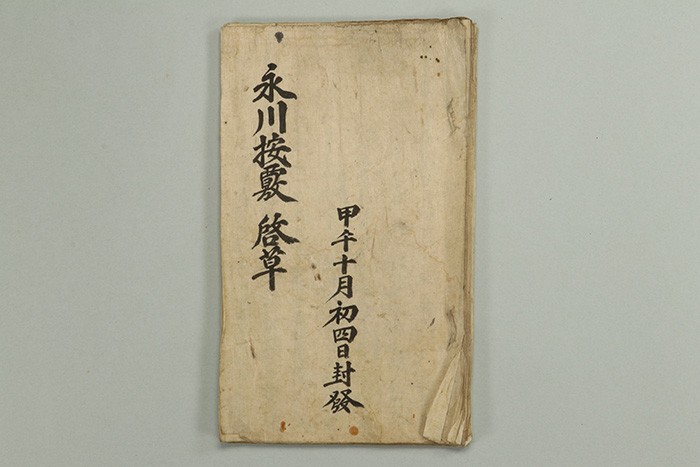 永川按覈 啓草
甲午十月初四日封發